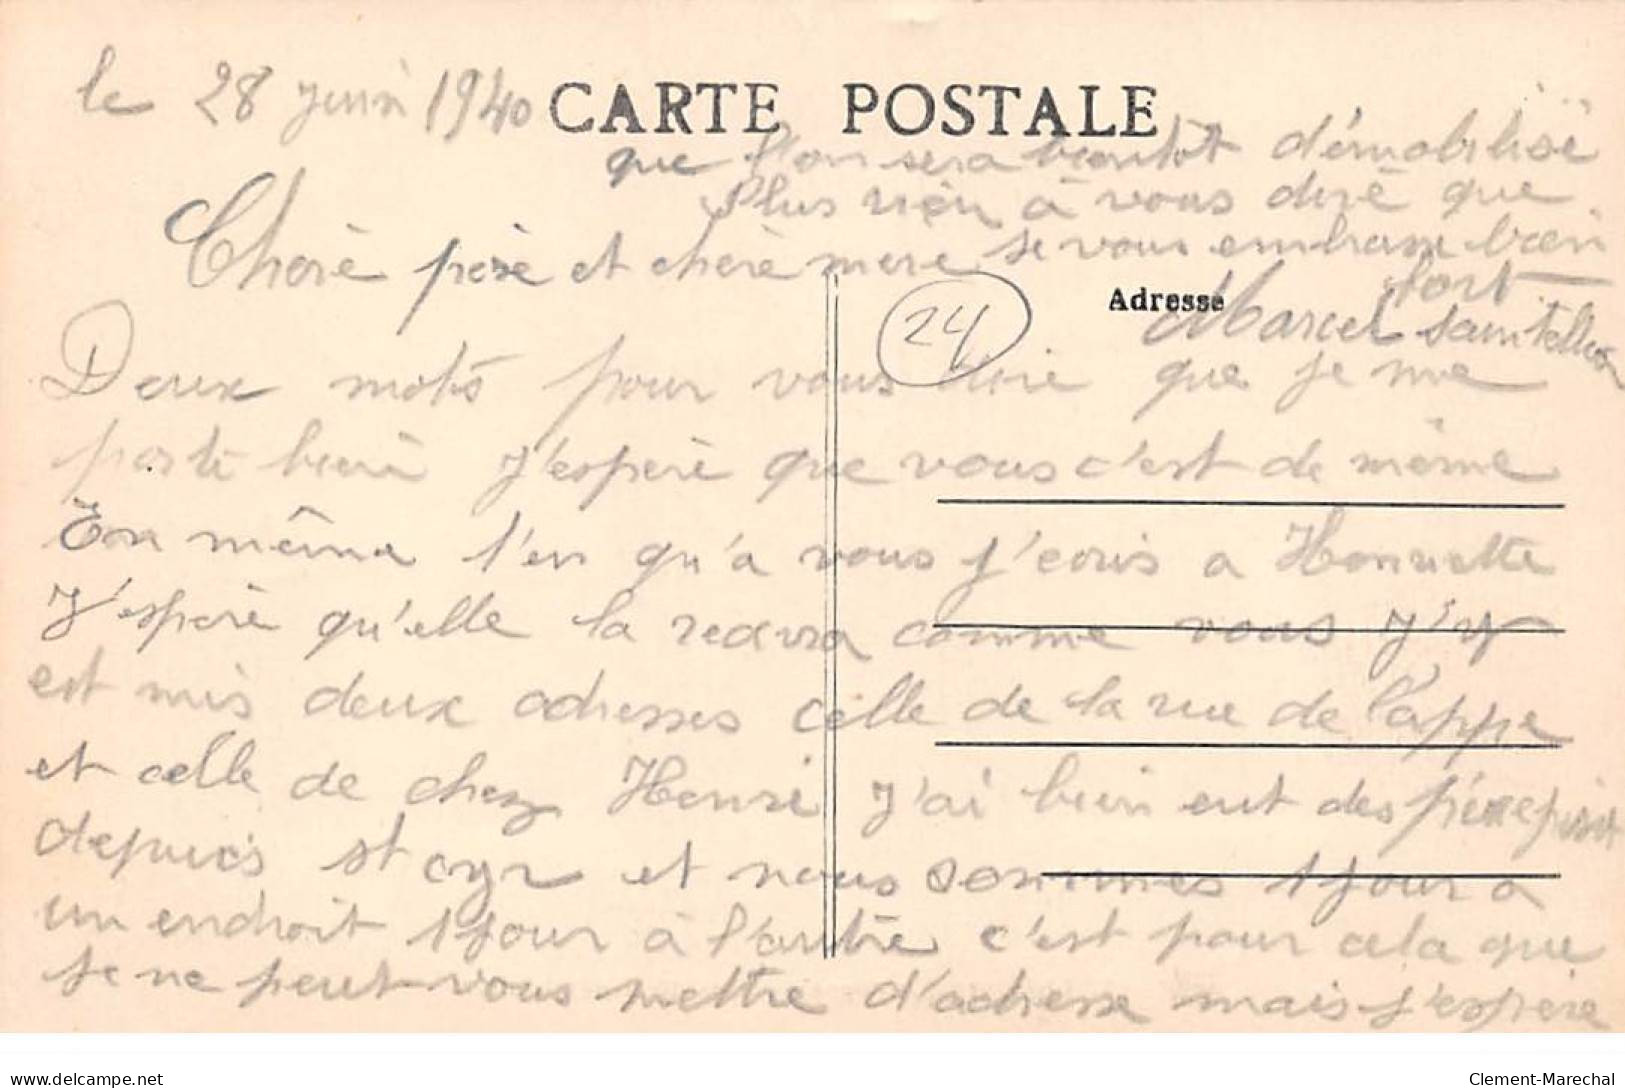 le 28 juin 1940
CARTE POSTALE
que l'on sera bientôt démobilisé
Plus rien à vous dire que
Chère père et chère mère je vous embrasse bien
fort
Adresse
Marcel
24
Deux mots pour vous dire que je me
porte bien J'espère que vous c'est de même
En même t'en qu'a vous j'ecris a Henriette
J'espère qu'elle la recevra comme vous J'y
est mis deux adresses celle de la rue de Lappe
et celle de chez Henri J'ai bien eut des
depuis st cyr et nous sommes 1 jour a
un endroit 1 jour à l'autre c'est pour cela que
je ne peut vous mettre d'adresse mais j'espère
delcampe.net
Clement-Marechal